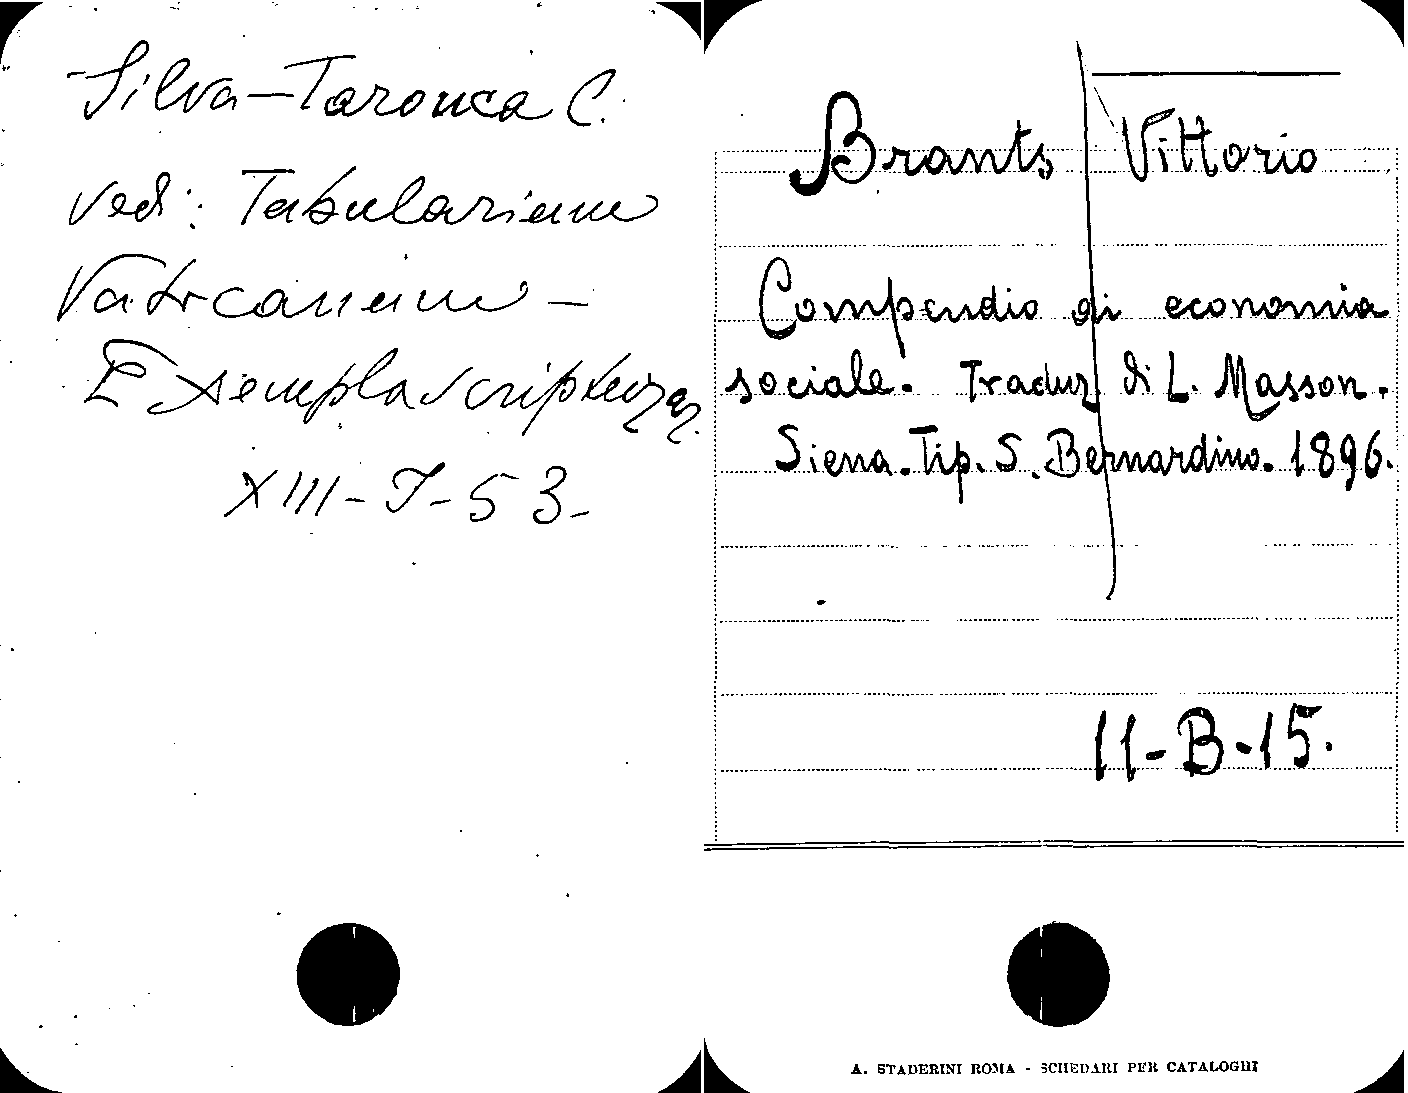 Silva-Tarouca C.
vedi: Tabularium
Vaticanum -
Exempla scripturar.
XIII-J-53-
Brants Vittorio
Compendio di economia
sociale. Traduz. di L. Masson.
Siena. Tip. S. Bernardino. 1896.
11-B-15.
A. STADERINI ROMA - SCHEDARI PER CATALOGHI